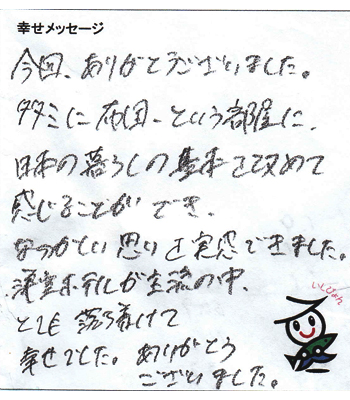 幸せメッセージ
今回、ありがとうございました。
タタミに布団、という部屋に、
日本の暮らしの基本を改めて
感じることができ、
なつかしい思いを実感できました。
洋室ホテルが主流の中、
とても落ち着けて
幸せでした。ありがとう
ございました。
いしぴょん